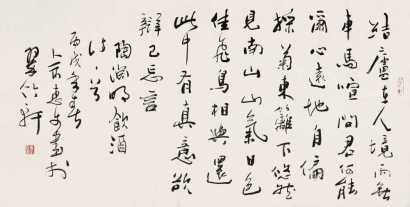 结庐在人境而無
車馬喧問君何能
爾心遠地自偏
採菊東籬下悠然
見南山山氣日夕
佳飛鳥相與還
此中有真意欲
辯已忘言
陶淵明飲酒
詩一首
丙戌年春
於
翠竹軒